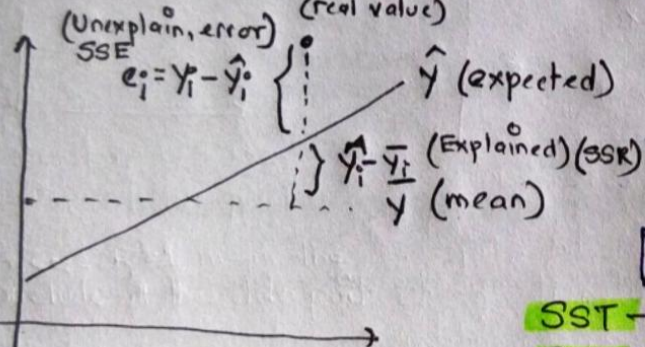 (real value)
(Unexplain, error)
SSE
eᵢ = yᵢ - ŷᵢ
ŷ (expected)
ŷᵢ - ȳᵢ (Explained) (SSR)
ȳ (mean)
SST